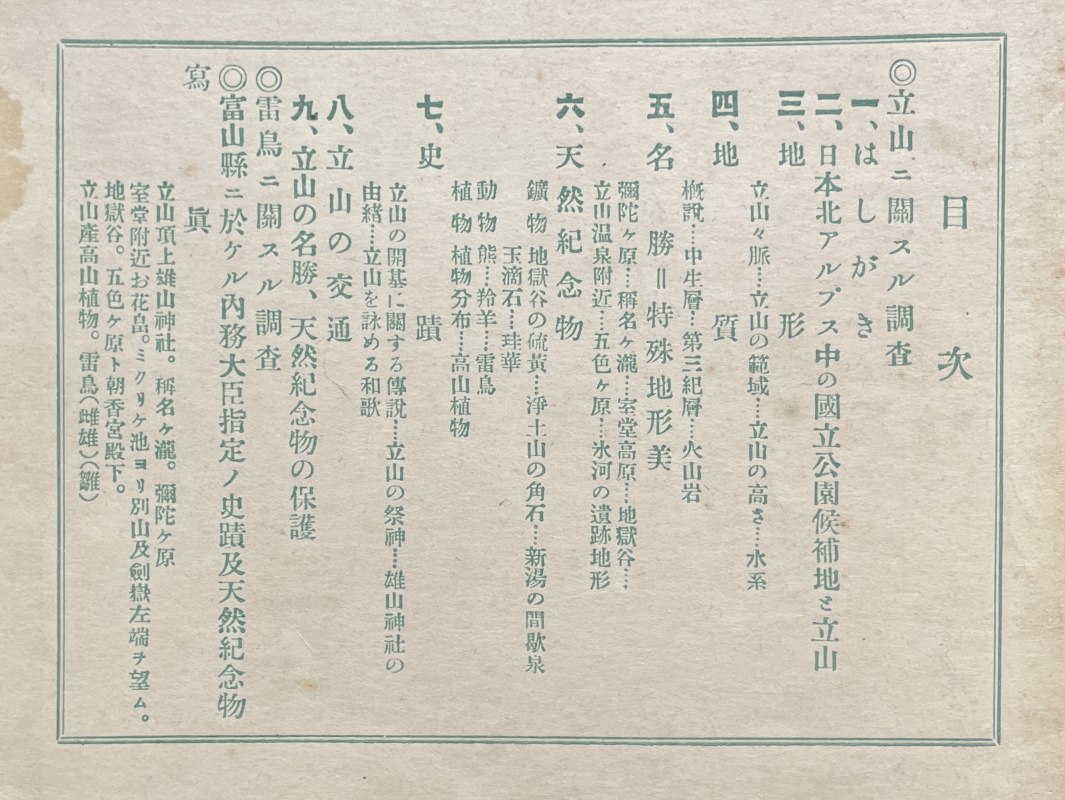 目次
◎立山ニ關スル調査
一、はしがき
二、日本北アルプス中の國立公園候補地と立山
三、地形
立山々脈……立山の範域……立山の高さ……水系
四、地質
概説……中生層…第三紀層……火山岩
五、名勝＝特殊地形美
彌陀ヶ原……稱名ヶ瀧……室堂高原……地獄谷……
立山温泉附近……五色ヶ原…氷河の遺跡地形
六、天然紀念物
鑛物 地獄谷の硫黄……淨土山の角石……新湯の間歇泉
玉滴石……珪華
動物 熊……羚羊……雷鳥
植物 植物分布……高山植物
七、史蹟
立山の開基に關する傳説……立山の祭神……雄山神社の
由緒……立山を詠める和歌
八、立山の交通
九、立山の名勝、天然紀念物の保護
◎雷鳥ニ關スル調査
◎富山縣ニ於ケル內務大臣指定ノ史蹟及天然紀念物
寫眞
立山頂上雄山神社。稱名ヶ瀧。彌陀ヶ原
室堂附近お花畠。ミクリケ池ヨリ別山及劍嶽左端ヲ望ム。
地獄谷。五色ヶ原ト朝香宮殿下。
立山產高山植物。雷鳥（雌雄）（雛）